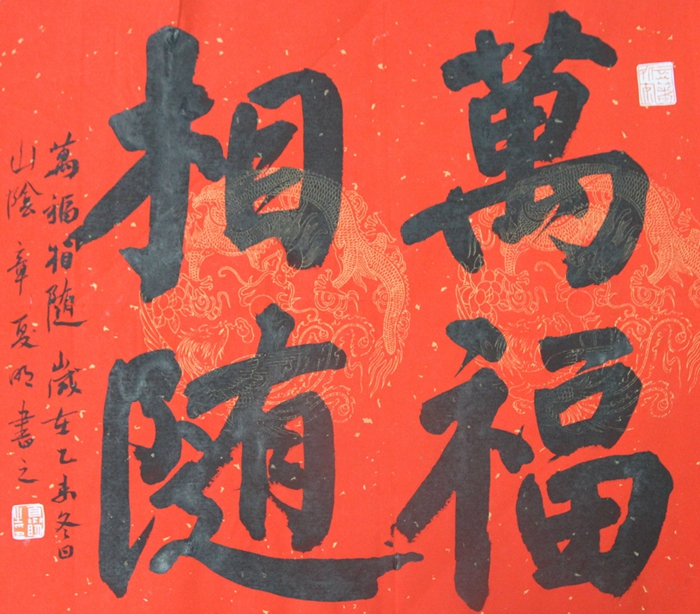 萬福
相随
萬福相随 歲在乙未冬日
山陰章夏明書之